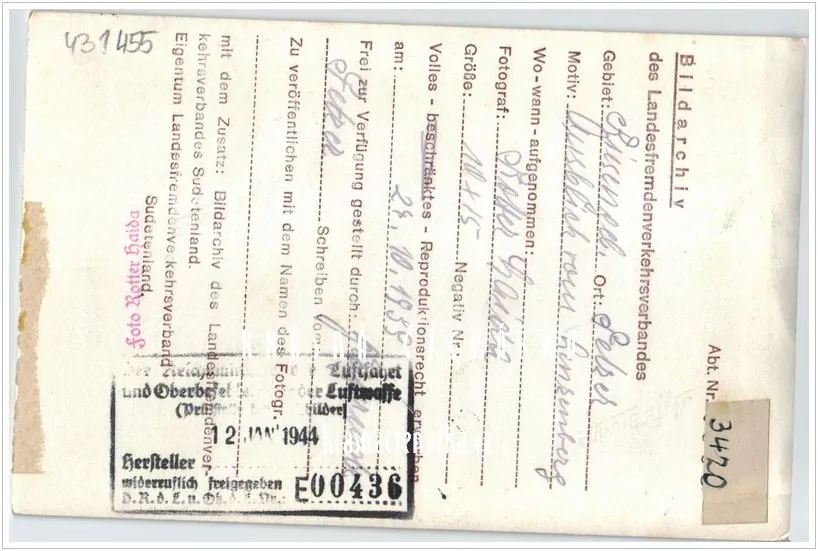 431455
Bildarchiv
des Landesfremdenverkehrsverbandes
Abt. Nr. 3420
Gebiet: Ort:
Motiv: Ausblick vom
Wo-wann-aufgenommen:
Fotograf: Rotter Haida
Größe: 10+15 Negativ Nr.:
Volles - beschränktes - Reproduktionsrecht erworben
am: 24.10.1935
Frei zur Verfügung gestellt durch:
Schreiben vom
Zu veröffentlichen mit dem Namen des Fotogr.
mit dem Zusatz: Bildarchiv des Landesfremdenver-
kehrsverbandes Sudetenland.
Eigentum Landesfremdenverkehrsverband
Sudetenland,
Foto Rotter Haida
Der Reichsminister der Luftfahrt
und Oberbefehlshaber der Luftwaffe
12 JAN 1944
Hersteller
widerruflich freigegeben
D.R.d.L.u.Ob.d.L.Nr.: E00436